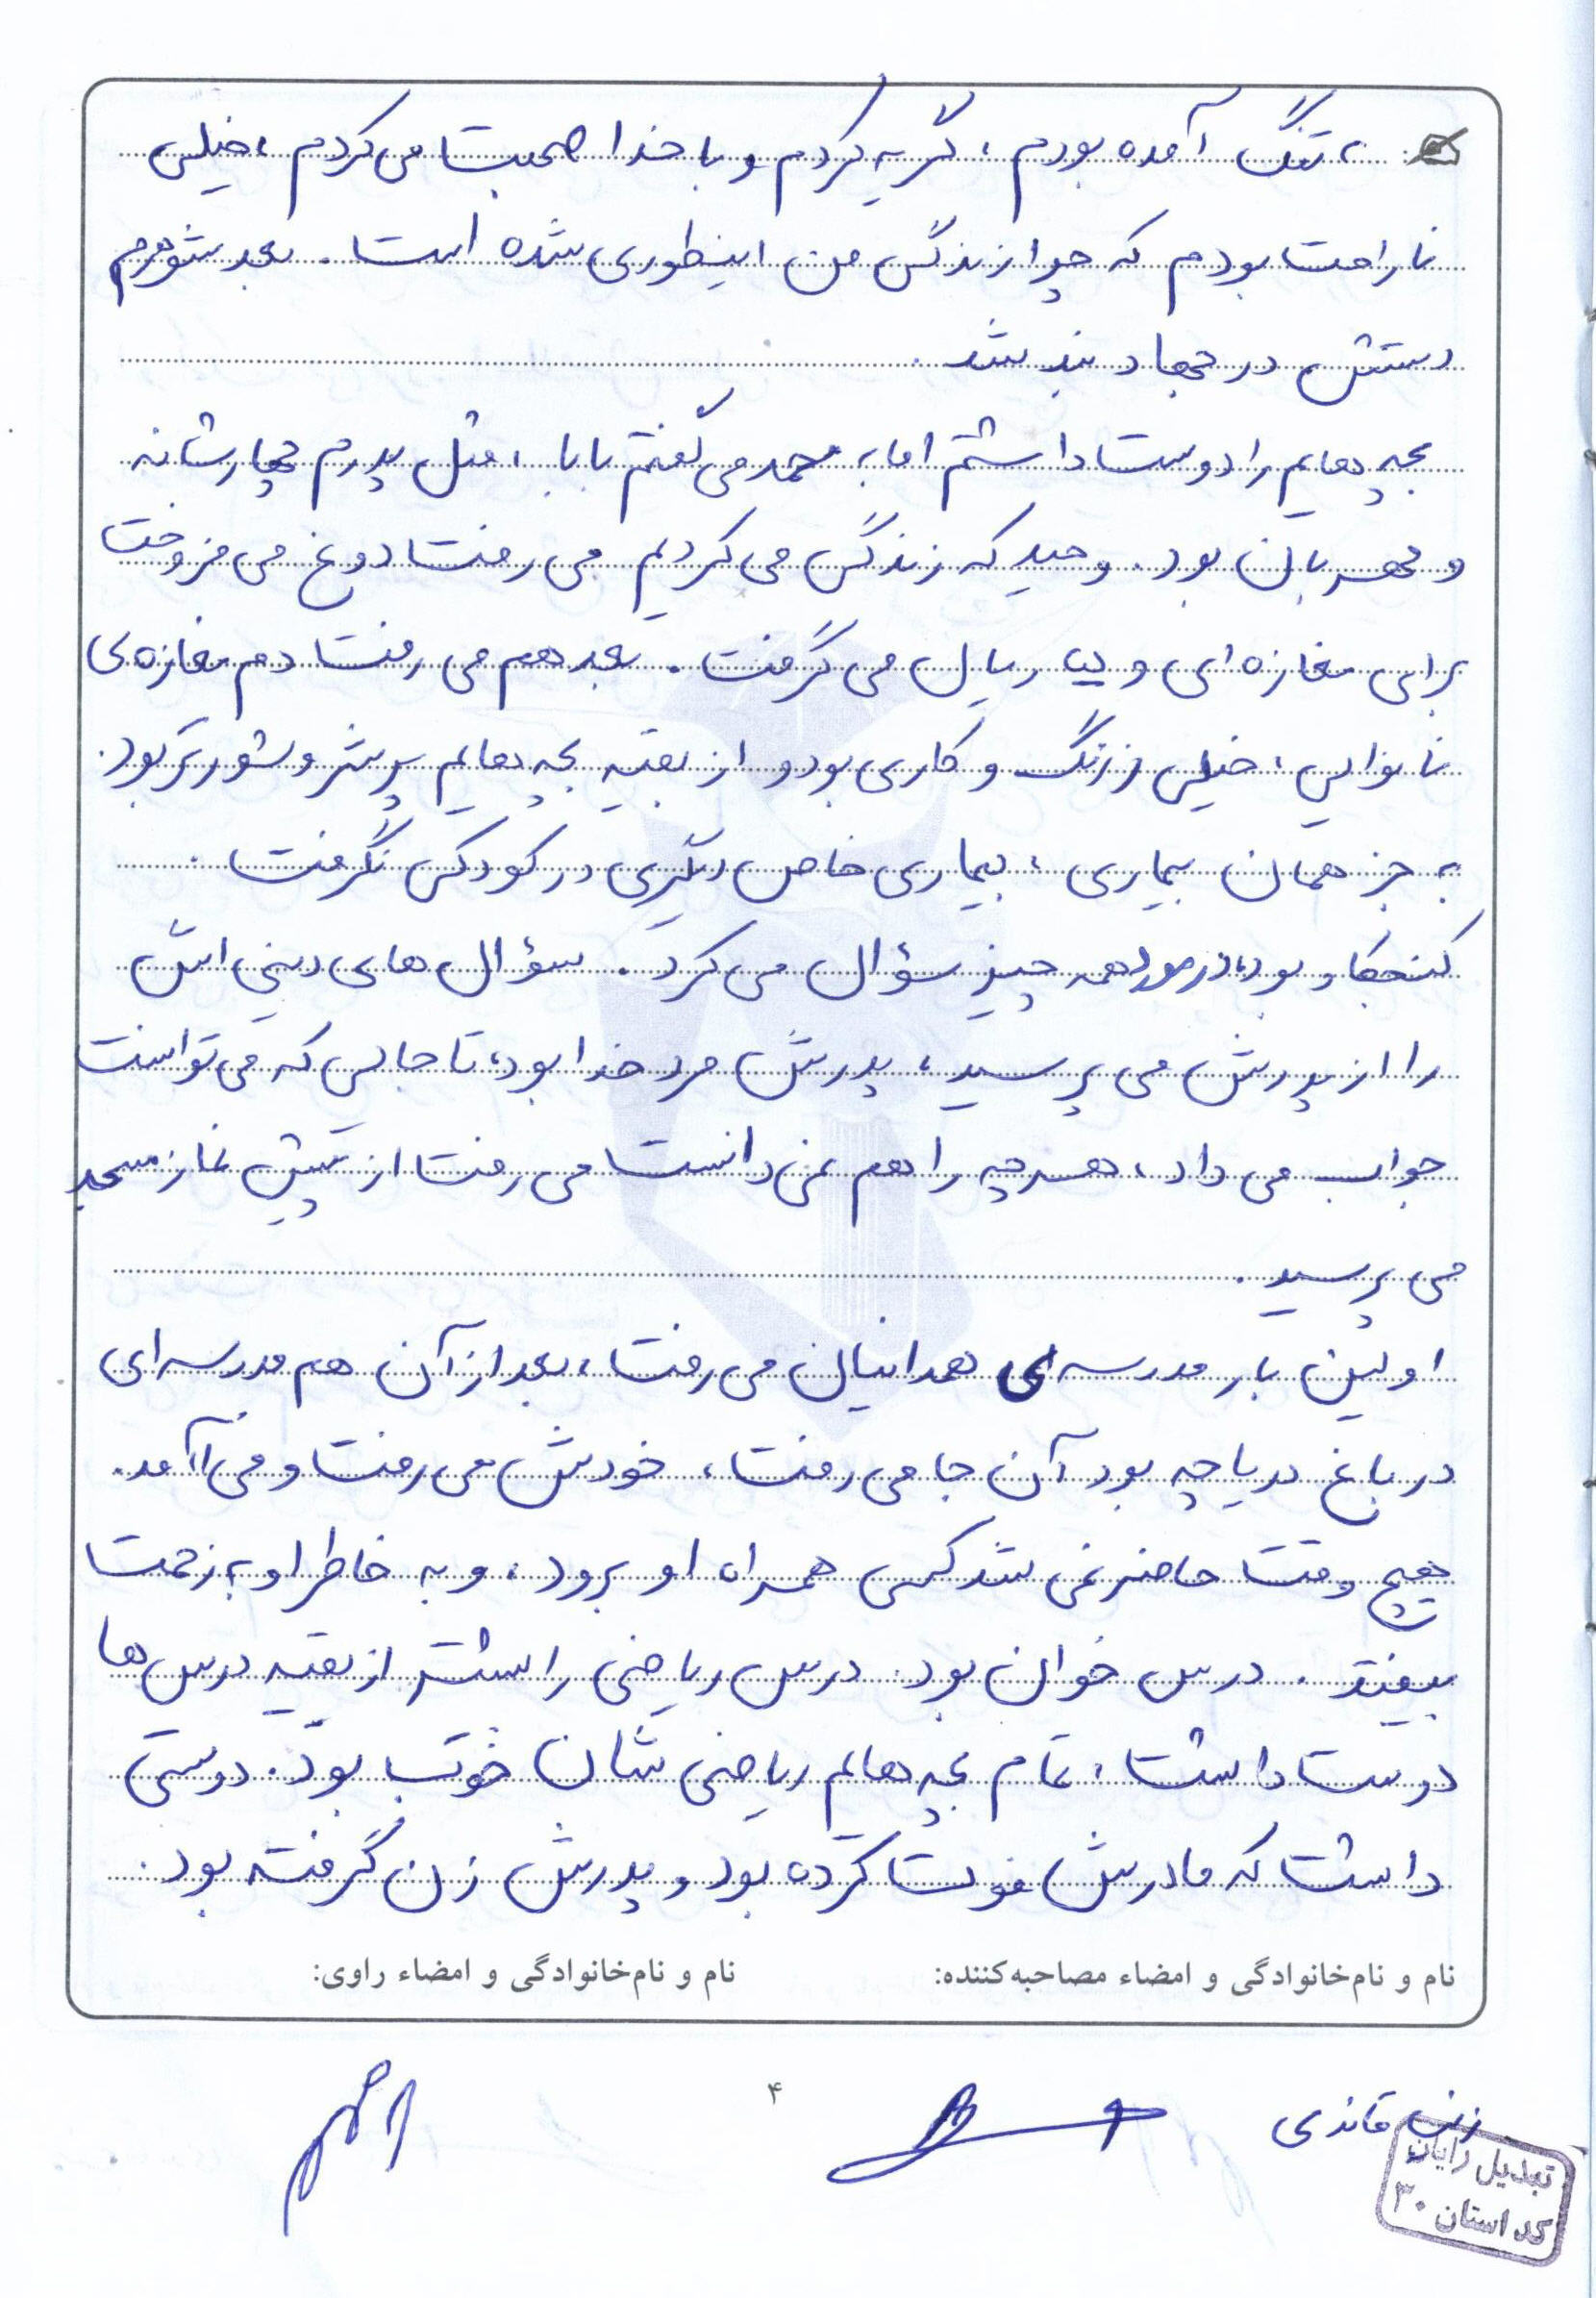 ، تنگ آمده بودم ، گریه کردم و با خدا صحبت می کردم ، خیلی
ناراحت بودم که چرا زندگی من اینطوری شده است . بعد شوهرم
دستش در جهاد بند شد .
بچه هایم را دوست داشتم اما به محمد می گفتم بابا ، مثل پدرم چهارشانه
و مهربان بود . وحید که زندگی می کردیم می رفت دوغ می فروخت
برای مغازه ای و ریال می گرفت . بعد هم می رفت دم مغازه ی
نانوایی ، خیلی زرنگ و کاری بود و از بقیه بچه هایم پر شر و شورتر بود .
به جز همان بیماری ، بیماری خاص دیگری در کودکی نگرفت .
کنجکاو بود، در مورد همه چیز سؤال می کرد . سؤال های دینی اش
را از پدرش می پرسید ، پدرش مرد خدا بود، تا جایی که می توانست
جواب می داد ، هرچه را هم نمی دانست می رفت از پیش نماز مسجد
می پرسید .
اولین بار مدرسه ای همدانیان می رفت ، بعد از آن هم مدرسه ای
در باغ دریاچه بود آن جا می رفت ، خودش می رفت و می آمد .
هیچ وقت حاضر نمی شد کسی همراه او برود ، و به خاطر او به زحمت
بیفتد . درس خوان بود . درس ریاضی را بیشتر از بقیه درس ها
دوست داشت ، تمام بچه هایم ریاضی شان خوب بود . دوستی
داشت که مادرش فوت کرده بود و پدرش زن گرفته بود .
نام و نام‌خانوادگی و امضاء مصاحبه‌کننده: نام و نام‌خانوادگی و امضاء راوی:
۴
قائدی
تبدیل رایان
کد استان ۳۰